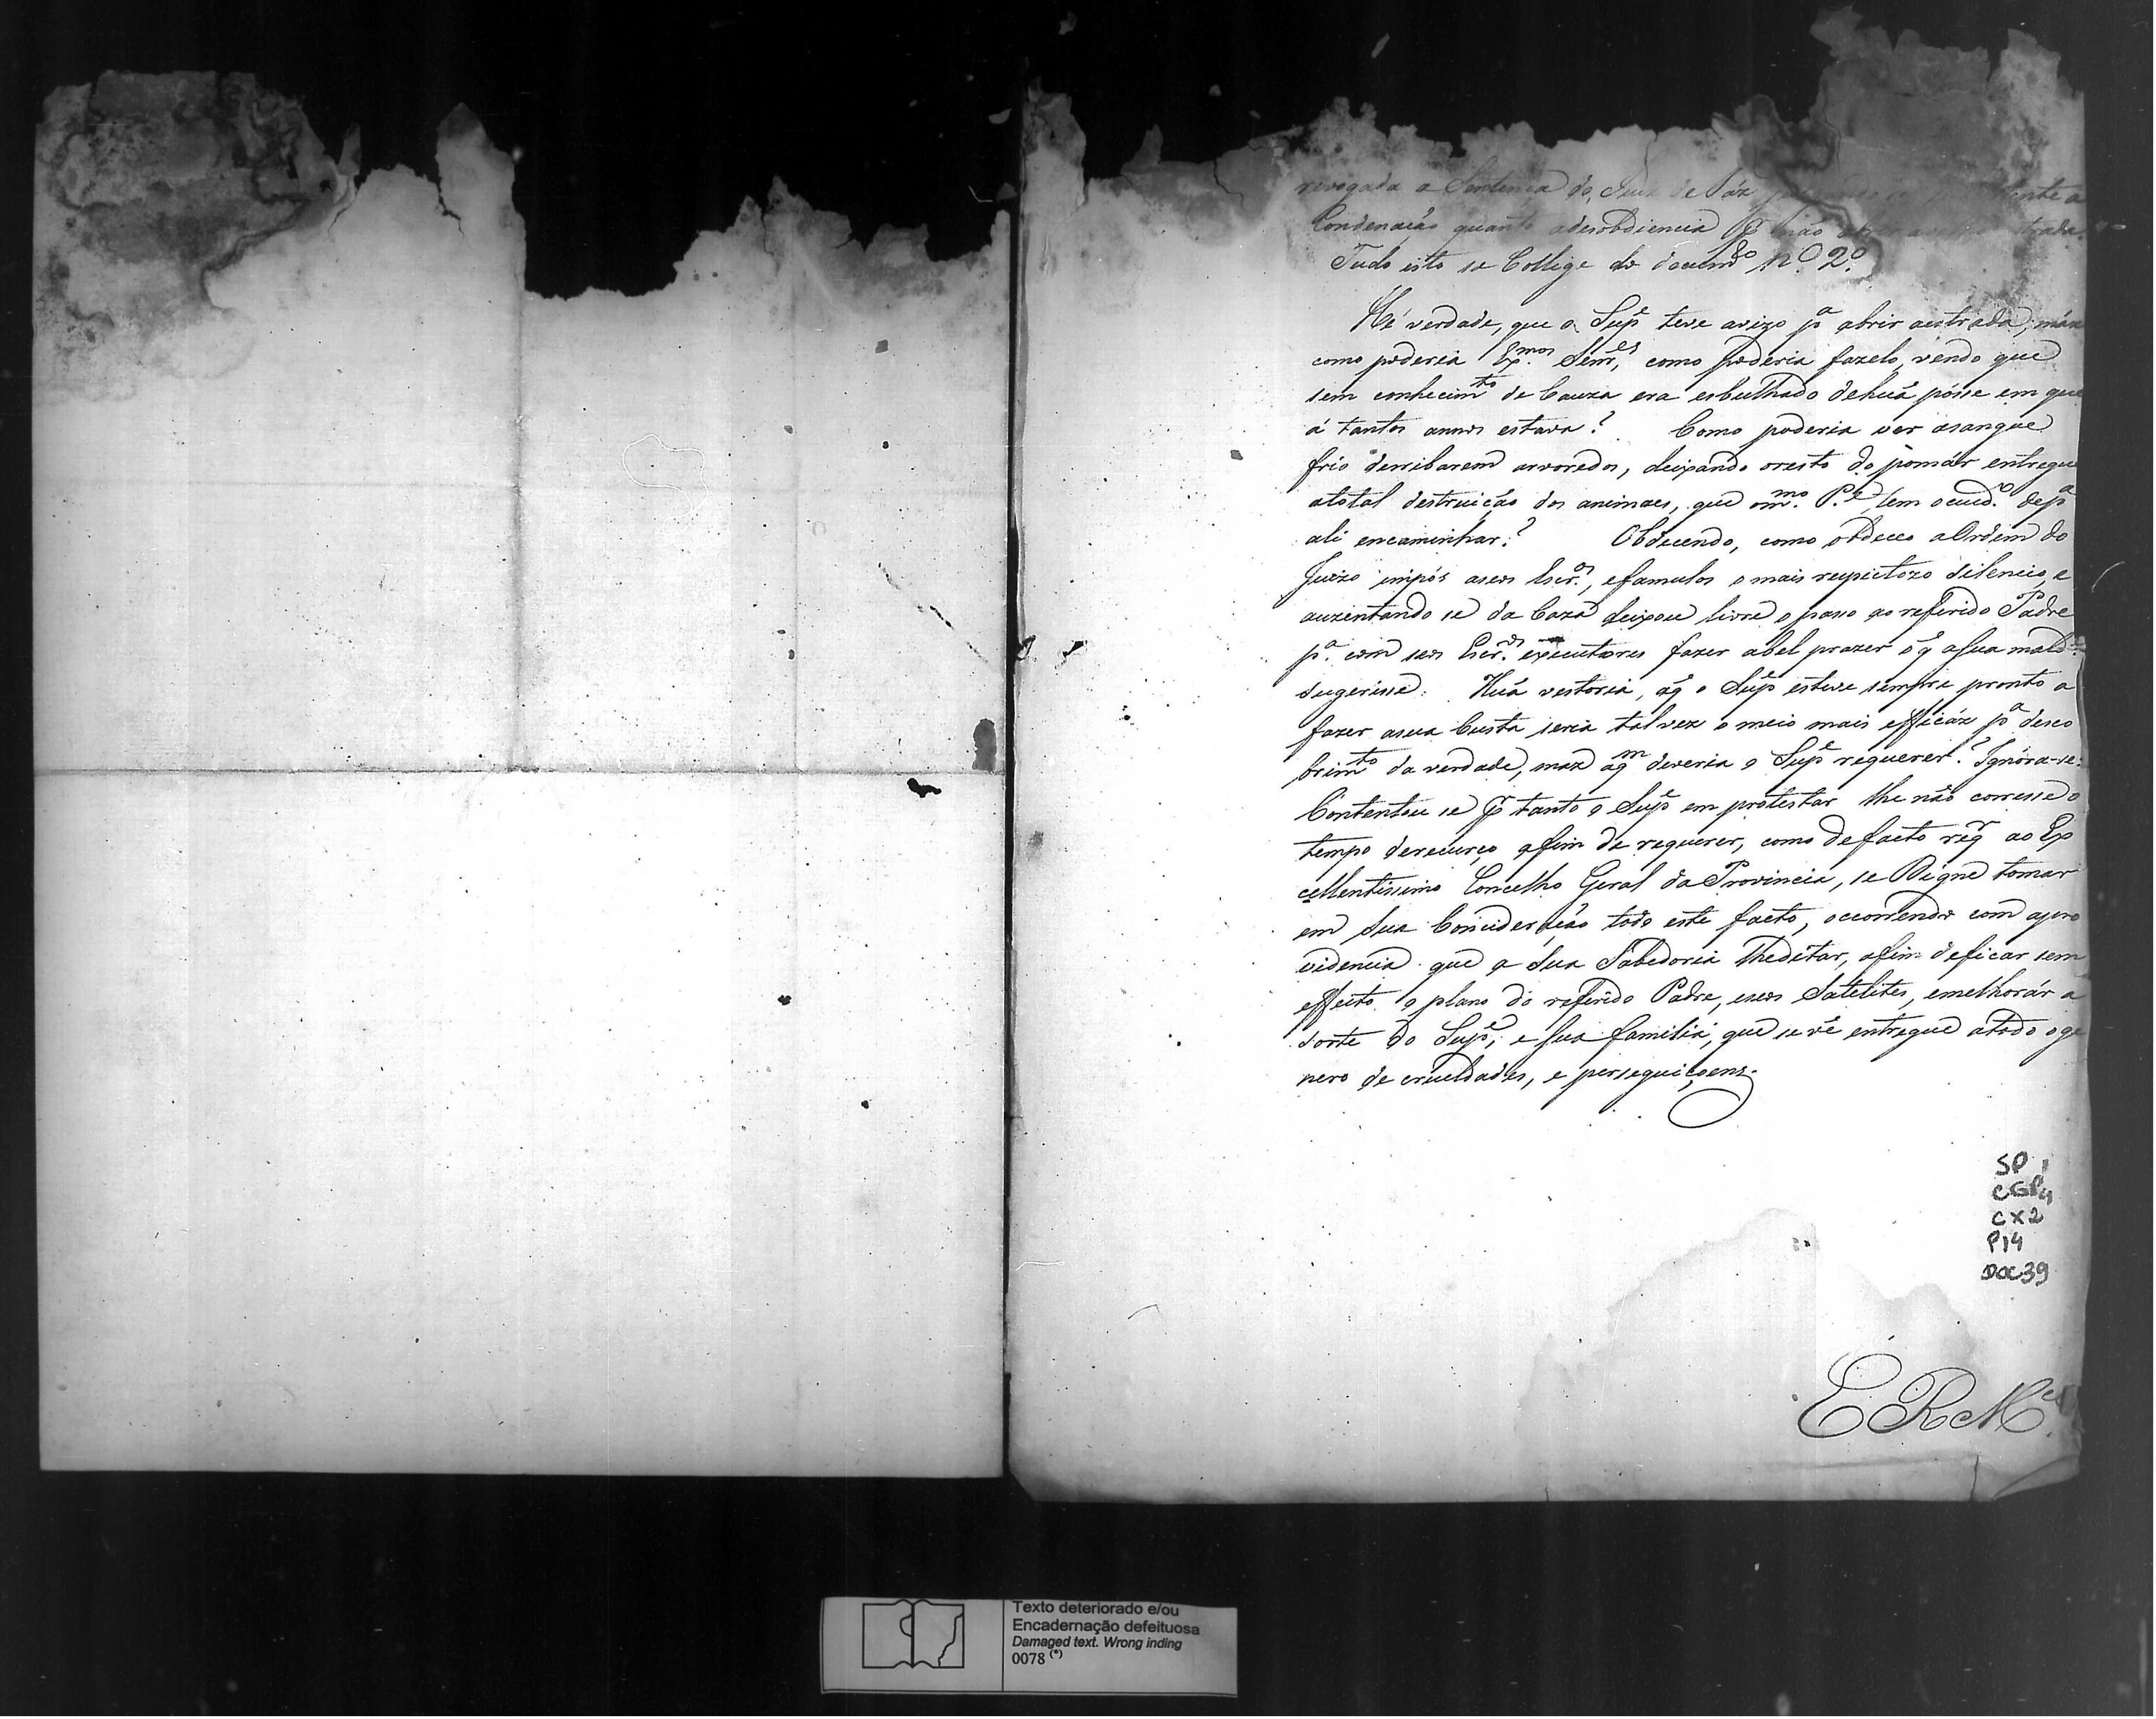 revogada a Sentença do Juiz de Páz
Condenação quanto a desobdiencia pr não abrir estrada.
Tudo isto se Collige do docum.to N.º 2.º
Hé verdade, que o Sup.e teve avizo p.a abrir aestrada, mas
como poderia Ex.mos Senr.es, como poderia fazelo, vendo que
sem conhecim.to de Cauza era esbulhado dehuã pósse em que
á tantos annos estava? Como poderia ver asangue
frio derribarem arvoredos, deixando oresto do pomár entregue
atotal destruição dos animaes, que om.mo P.e tem ocuid.o dep.a
ali encaminhar? Obdecendo, como obdeceo aOrdem do
Juizo impôs aseus Escr.os, efamulos o mais respeitozo silencio, e
auzentando se da Caza deixou livre o passo ao referido Padre
p.a com seus Escr.os executores fazer abel prazer oq̃ aSua mald.e
sugerisse. Huã vestoria, aq̃ o Sup.e esteve sempre pronto a
fazer asua Custa seria talvez o meio mais efficáz p.a desco
brim.to da verdade, mas aq.m deveria o Sup.e requerer? Ignóra-se.
Contentou se pr tanto o Sup.e em protestar lhe não corresse o
tempo derecurço afim de requerer, como defacto req.r ao Ex
cellentissimo Concelho Geral da Provincia, se Digne tomar
em Sua Concideração todo este facto, occorrendo com apro
videncia que a Sua Sabedoria lheditar, afim deficar sem
effeito o plano do referido Padre, eseus Satelites, emelhorár a
sorte do Sup.e, e Sua familia, que se vê entregue atodo oge
nero de crueldades, e perseguiçoens.
SP
CGP4
CX2
P14
DOC39
E R M.ce
Texto deteriorado e/ou
Encadernação defeituosa
Damaged text. Wrong inding
0078 (*)